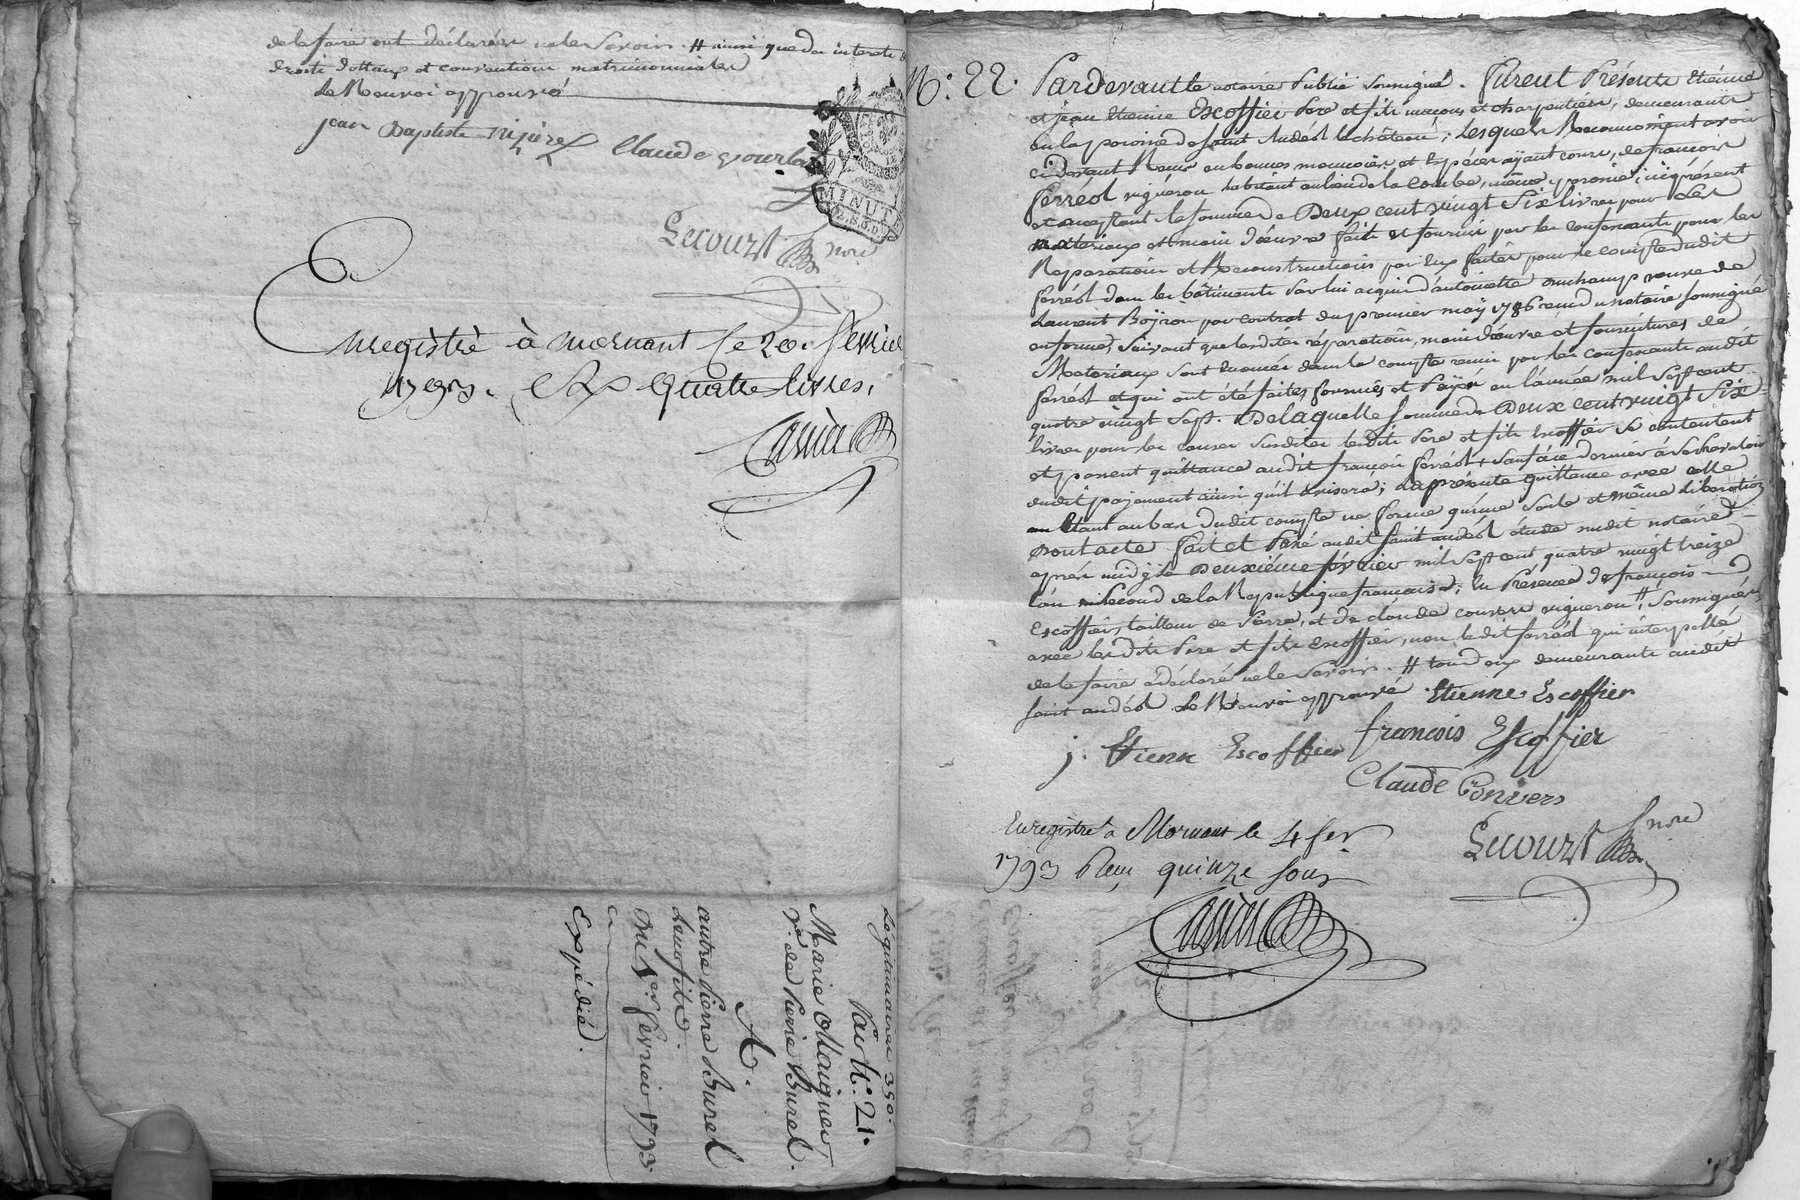 de le faire ont déclaré ne le Savoir. # ainsi que des interets
droits dottaux et conventions matrimonialles
Le Renvoi approuvé
jean Baptiste Claude
MINUTE
Lecourt nore
Enregistré à Mornant le 20. fevrier
1793. Quatre livres.
Légitimaires 350.
Par Nº. 21.
Marie
Ve. de Pierre Burel
A.
autre Pierre Burel
Leur fils.
Du 1er. février 1793.
Expédié.
Nº. 22. Pardevant le notaire Public Soussigné. furent Présents Etienne
et jean Etienne Escoffier Pere et fils maçons et charpentiers, demeurants
en la paroisse de Saint Andéol le château; Lesquels Reconnoissent avoir
cidevant Reçu en bonnes monnoies et Espéces ayant cours, de françois
ferréol vigneron habitant au lieu de la Combe, même paroisse, ici présent
et acceptant la somme de Deux cent vingt Six livres pour des
materiaux et main d'œuvre faits et fournis par les confessants pour les
Reparations et Reconstructions par Eux faites pour le compte dudit
ferréol dans les bâtiments Par lui acquis d'antoinette veuve de
Laurent par contrat du premier may 1786 reçu du notaire soussigné
en forme, Suivant que lesdites réparations, main d'œuvre et fournitures de
Materiaux sont énoncés dans le compte remis par les confessants audit
ferréol et qui ont été faites fournies et Payés en l'année mil Sept cent
quatre vingt Sept. De laquelle Somme de Deux cent vingt Six
livres pour les causes Susdites lesdits Pere et fils Escoffier Se contentent
et passent quittance audit françois ferréol, Sauf à ce dernier à Se prévaloir
dudit payement ainsi qu'il avisera; La présente quittance avec celle
Etant au bas dudit compte ne forme qu'une Seule et même Liberation
Dont acte fait et Passé audit Saint andéol étude dudit notaire
après midy le Deuxiéme février mil Sept cent quatre vingt treize
l'an Second de la République francaise; En Présence de françois
Escoffier, tailleur de Pierre, et de claude convers vigneron #, Soussignés
avec lesdits Pere et fils Escoffier, non ledit ferréol qui interpellé
de le faire a déclaré ne le Savoir. # tous deux demeurants audit
Saint andéol Le Renvoi approuvé. Etienne Escoffier
j. Etienne Escoffier francois Escoffier
Claude Convers
Enregistré a Mornant le 4 fev.
1793 Reçu quinze sous
Lecourt nore